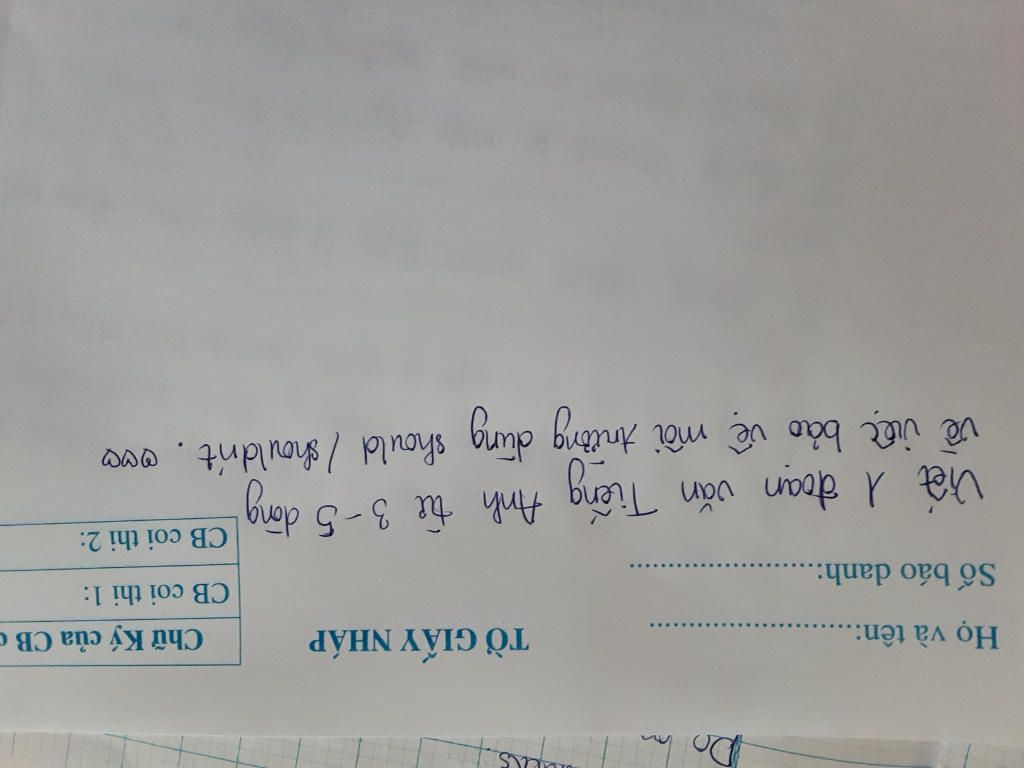 TỜ GIẤY NHÁP
Họ và tên:..............................
Số báo danh:...........................
Chữ Ký của CB
CB coi thi 1:
CB coi thi 2:
Viết 1 đoạn văn Tiếng Anh từ 3-5 dòng
về việc bảo vệ môi trường dùng should / shouldn't.